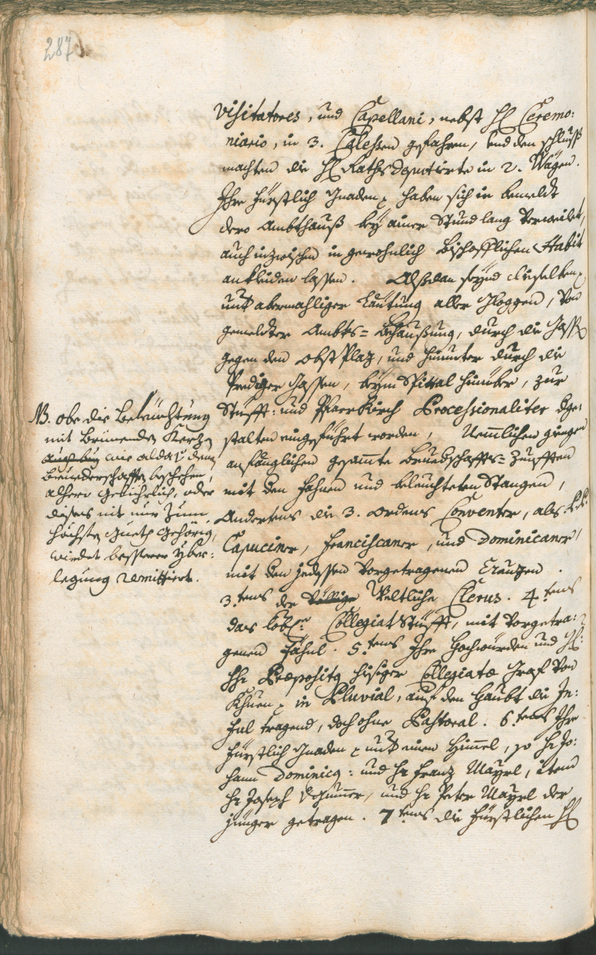 287
visitatores, und Capellani, nebst H. Ceremo:
niario, in 3. Calessen gefahren, und den schluß
machten die H. Raths Deputirte in 2. Wägen.
Ihre Fürstlich Gnaden haben sich in bemeldt
dero Ambthauß bey ainer Stund lang verweilet,
auch inzwischen in gewohnlich Bischofflichen Habit
ankleiden lassen. Alsdan seynd dieselbe
unter abermahliger Leutung aller Gloggen, von
gemelter Ambts=Behaußung, durch die Gassen
gegen den obst Plaz, und hinunter durch die
Prediger Gassen, beym Spittal hinüber, zur
Stüfft: und Pfarrkirch Processionaliter
stalten eingeführt worden. Nemmlichen giengen
anfänglichen gesammte Bruedschaffts=Zunfften
mit den Fahnen und beleuchteten Stangen,
Andertens die 3. ordens Conventer, als
Capuciner, Franciscaner, und Dominicaner,
mit den jedessen vorgetragenen Creützen.
3.tens der Weltliche Clerus. 4.tens
das löbl. Collegiat Stüfft, mit vorgetra:
genen Fahnl. 5.tens Ihro Hochwürden und
Praepositus hiesiger Collegiatae Graf von
Khuen in Pluvial, auf den Haubt die In:
ful tragend, doch ohne Pastoral. 6.tens Ihro
Fürstlich Gnaden unter einen Himmel, so H. Jo:
hann Dominicq: und H. Franz Mayrl, item
H. Joseph, und H. Peter Mayrl der
jünger getragen. 7.tens die Fürstlichen H.
NB. ob die Beleüchtung
mit brinenden Kerzen
wie alda von denen
Bruederschafften beschehen,
alhier gebrüchlich, oder
dises nit nur zum
höchsten Gueth gehörig,
wirdet besserer yber:
legung remittiert.